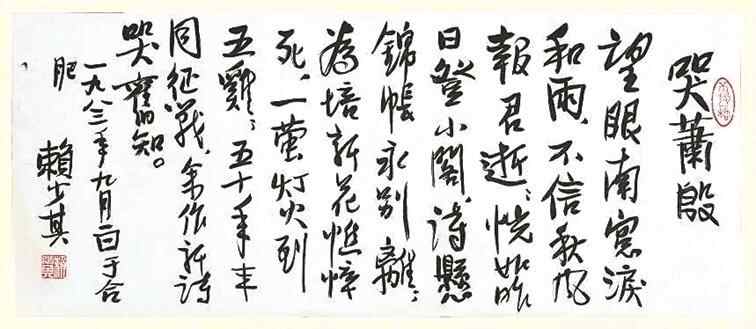 哭蕭殷
望眼南窓淚
和雨、不信秋风
報君逝；恍如昨
日登小閣、詩懸
錦帳永别離；
為培新花憔悴
死、一萤灯火到
五雞；五十年来
同征战、余作新詩
哭舊知。
一九八三年九月一日于合
肥 賴少其